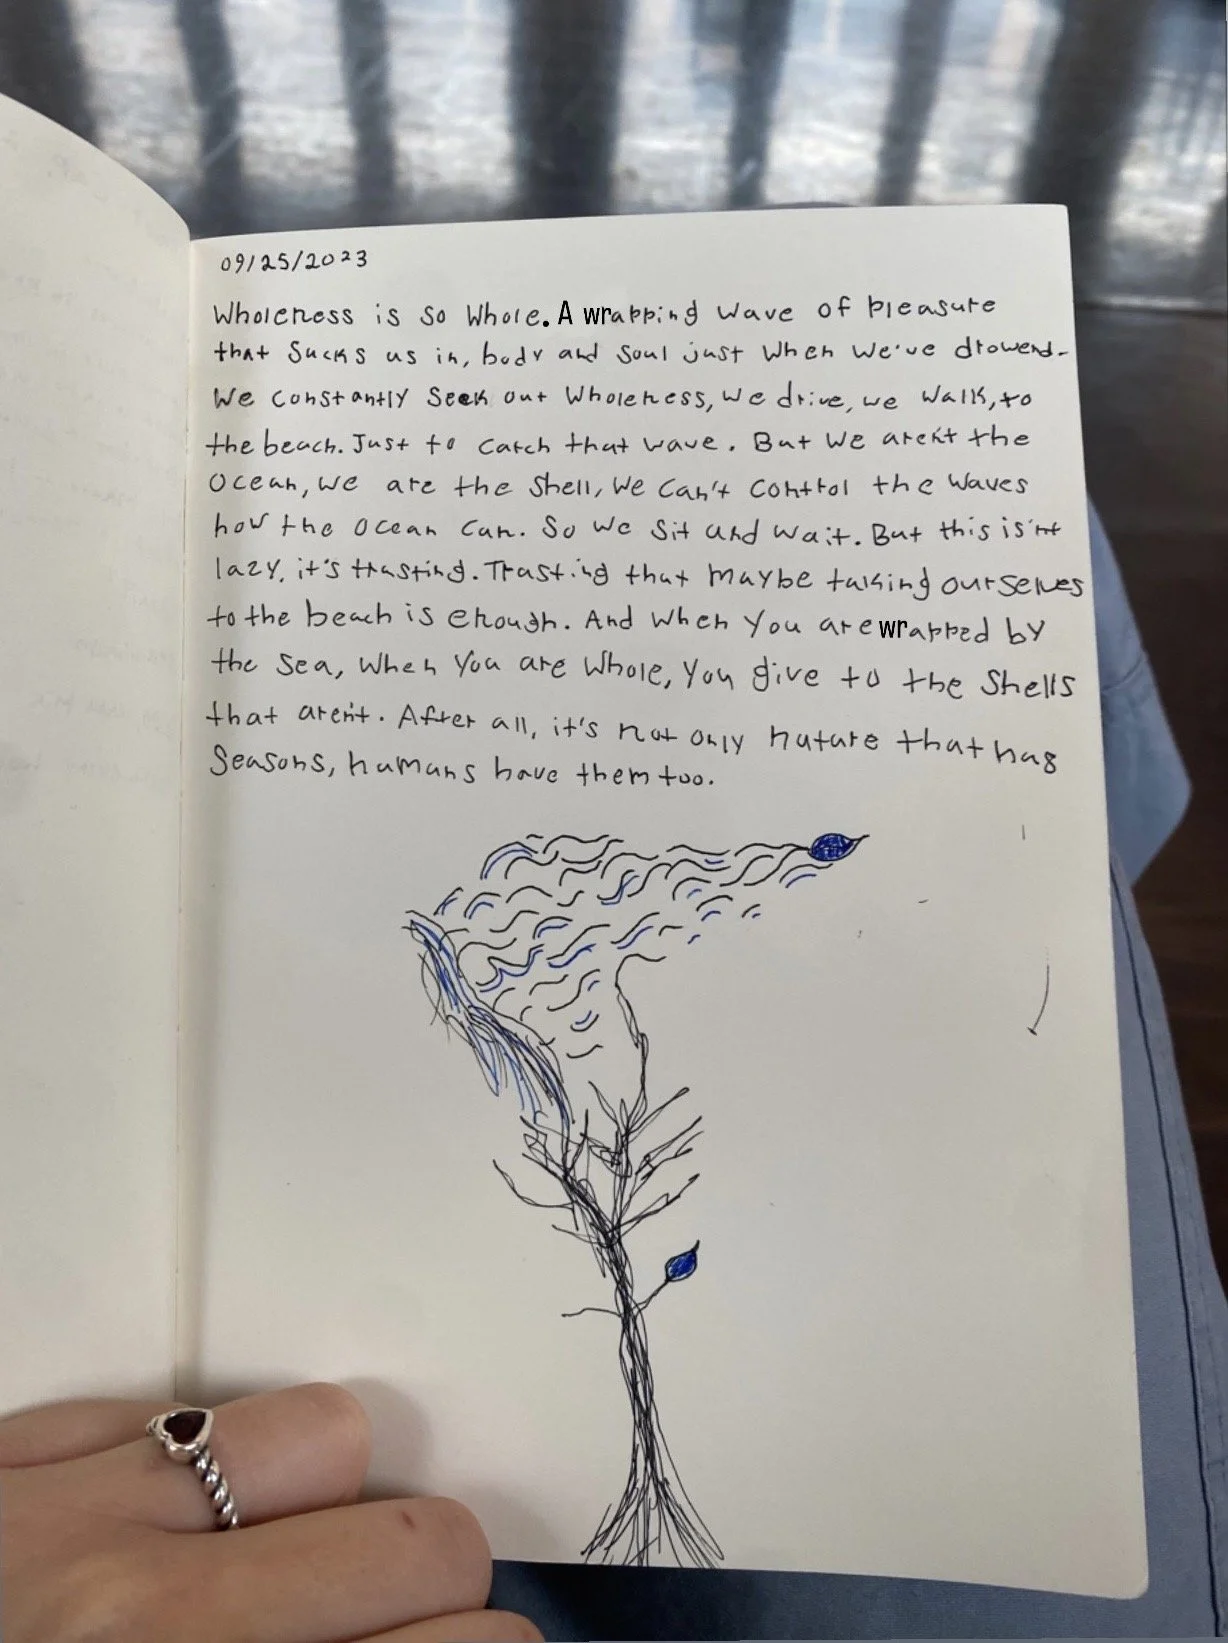 09/25/2023
Wholeness is so whole. A wrapping wave of pleasure
that sucks us in, body and soul just when we've drowend.
We constantly seek out wholeness, we drive, we walk, to
the beach. Just to catch that wave. But we aren't the
ocean, we are the shell, we can't control the waves
how the ocean can. So we sit and wait. But this is'nt
lazy, it's trusting. Trusting that maybe taking ourselves
to the beach is enough. And when you are wrapped by
the sea, when you are whole, you give to the shells
that aren't. After all, it's not only nature that has
seasons, humans have them too.